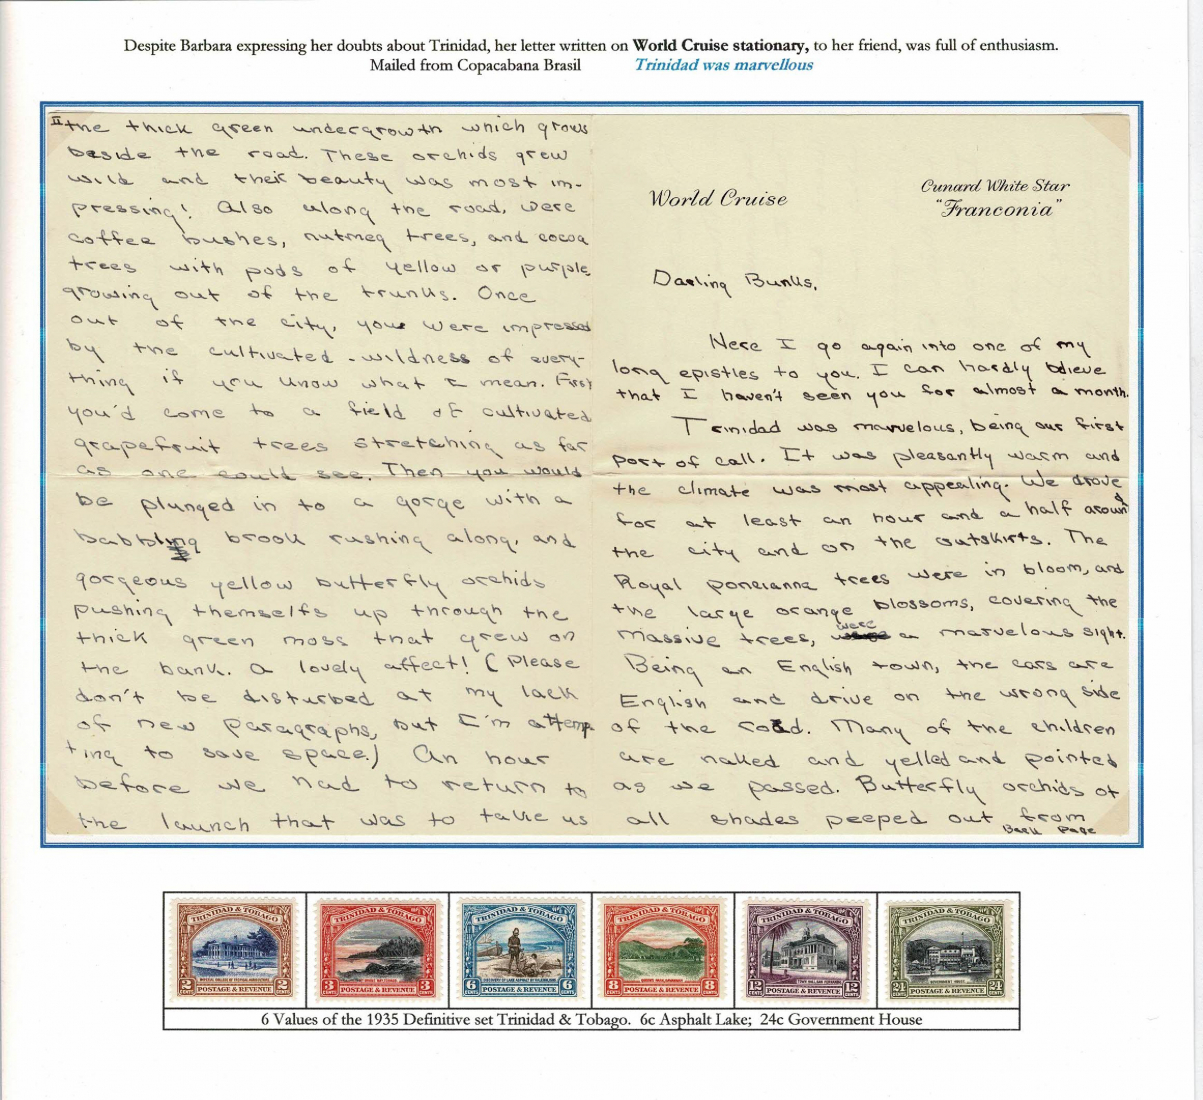 Despite Barbara expressing her doubts about Trinidad, her letter written on World Cruise stationary, to her friend, was full of enthusiasm.
Mailed from Copacabana Brasil Trinidad was marvellous
II
the thick green undergrowth which grows
beside the road. These orchids grew
wild and their beauty was most im-
pressing! Also along the road, were
coffee bushes, nutmeg trees, and cocoa
trees with pods of yellow or purple
growing out of the trunks. Once
out of the city, you were impressed
by the cultivated-wildness of every-
thing if you know what I mean. First
you'd come to a field of cultivated
grapefruit trees stretching as far
as one could see. Then you would
be plunged in to a gorge with a
babbling brook rushing along, and
gorgeous yellow butterfly orchids
pushing themselfs up through the
thick green moss that grew on
the bank. A lovely affect! (Please
don't be disturbed at my lack
of new paragraphs, but I'm attemp
ting to save space.) An hour
before we had to return to
the launch that was to take us
World Cruise
Cunard White Star
"Franconia"
Darling Bunks,
Here I go again into one of my
long epistles to you. I can hardly believe
that I haven't seen you for almost a month.
Trinidad was marvelous, being our first
port of call. It was pleasantly warm and
the climate was most appealing. We drove
for at least an hour and a half around
the city and on the outskirts. The
Royal poncianna trees were in bloom, and
the large orange blossoms, covering the
massive trees, were a marvelous sight.
Being an English town, the cars are
English and drive on the wrong side
of the road. Many of the children
are naked and yelled and pointed
as we passed. Butterfly orchids of
all shades peeped out from
Back Page
TRINIDAD & TOBAGO
IMPERIAL COLLEGE OF TROPICAL AGRICULTURE
2 CENTS POSTAGE & REVENUE 2 CENTS
TRINIDAD & TOBAGO
3 CENTS POSTAGE & REVENUE 3 CENTS
TRINIDAD & TOBAGO
6 CENTS POSTAGE & REVENUE 6 CENTS
TRINIDAD & TOBAGO
8 CENTS POSTAGE & REVENUE 8 CENTS
TRINIDAD & TOBAGO
12 CENTS POSTAGE & REVENUE 12 CENTS
TRINIDAD & TOBAGO
GOVERNMENT HOUSE
24 CENTS POSTAGE & REVENUE 24 CENTS
6 Values of the 1935 Definitive set Trinidad & Tobago. 6c Asphalt Lake; 24c Government House